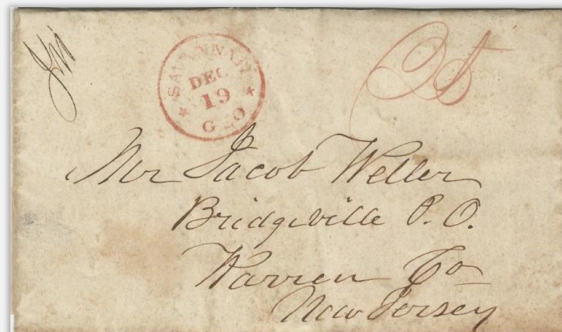 SAVANNAH
DEC
19
GEO
25
Mr Jacob Weller
Bridgeville P. O.
Warren Co
New Jersey